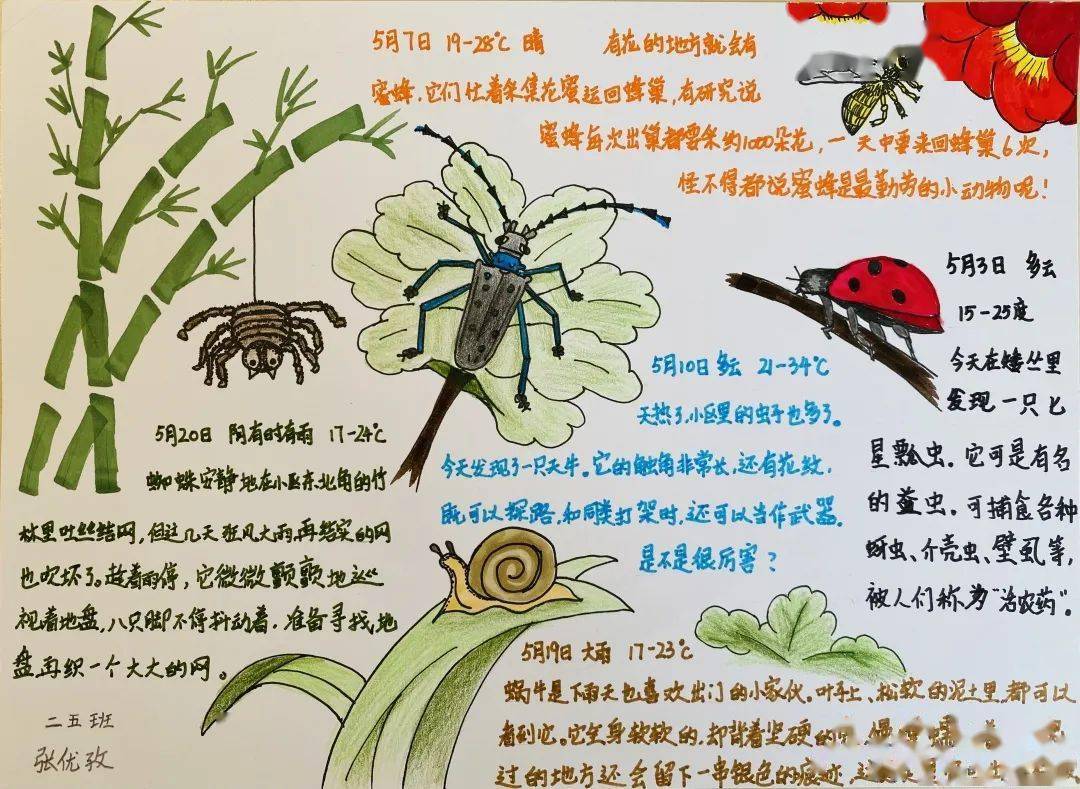 5月7日 19-28℃ 晴 有花的地方就会有
蜜蜂，它们忙着采集花蜜运回蜂巢，有研究说
蜜蜂每次出巢都要采约1000朵花，一天中要来回蜂巢6次，
怪不得都说蜜蜂是最勤劳的小动物呢！
5月3日 多云
15-25度
今天在矮丛里
发现一只七
星瓢虫。它可是有名
的益虫。可捕食各种
蚜虫、介壳虫、壁虱等，
被人们称为“活农药”。
5月10日 多云 21-34℃
天热了，小区里的虫子也多了。
今天发现了一只天牛。它的触角非常长，还有花纹，
既可以探路，和同类打架时，还可以当作武器。
是不是很厉害？
5月20日 阴有时有雨 17-24℃
蜘蛛安静地在小区东北角的竹
林里吐丝结网，但这几天狂风大雨，再结实的网
也吹坏了。趁着雨停，它微微颤颤地巡
视着地盘，八只脚不停抖动着，准备寻找地
盘再织一个大大的网。
5月19日 大雨 17-23℃
蜗牛是下雨天也喜欢出门的小家伙。叶子上、松软的泥土里，都可以
看到它。它全身软软的，却背着坚硬的
过的地方还会留下一串银色的痕迹，
二五班
张优孜